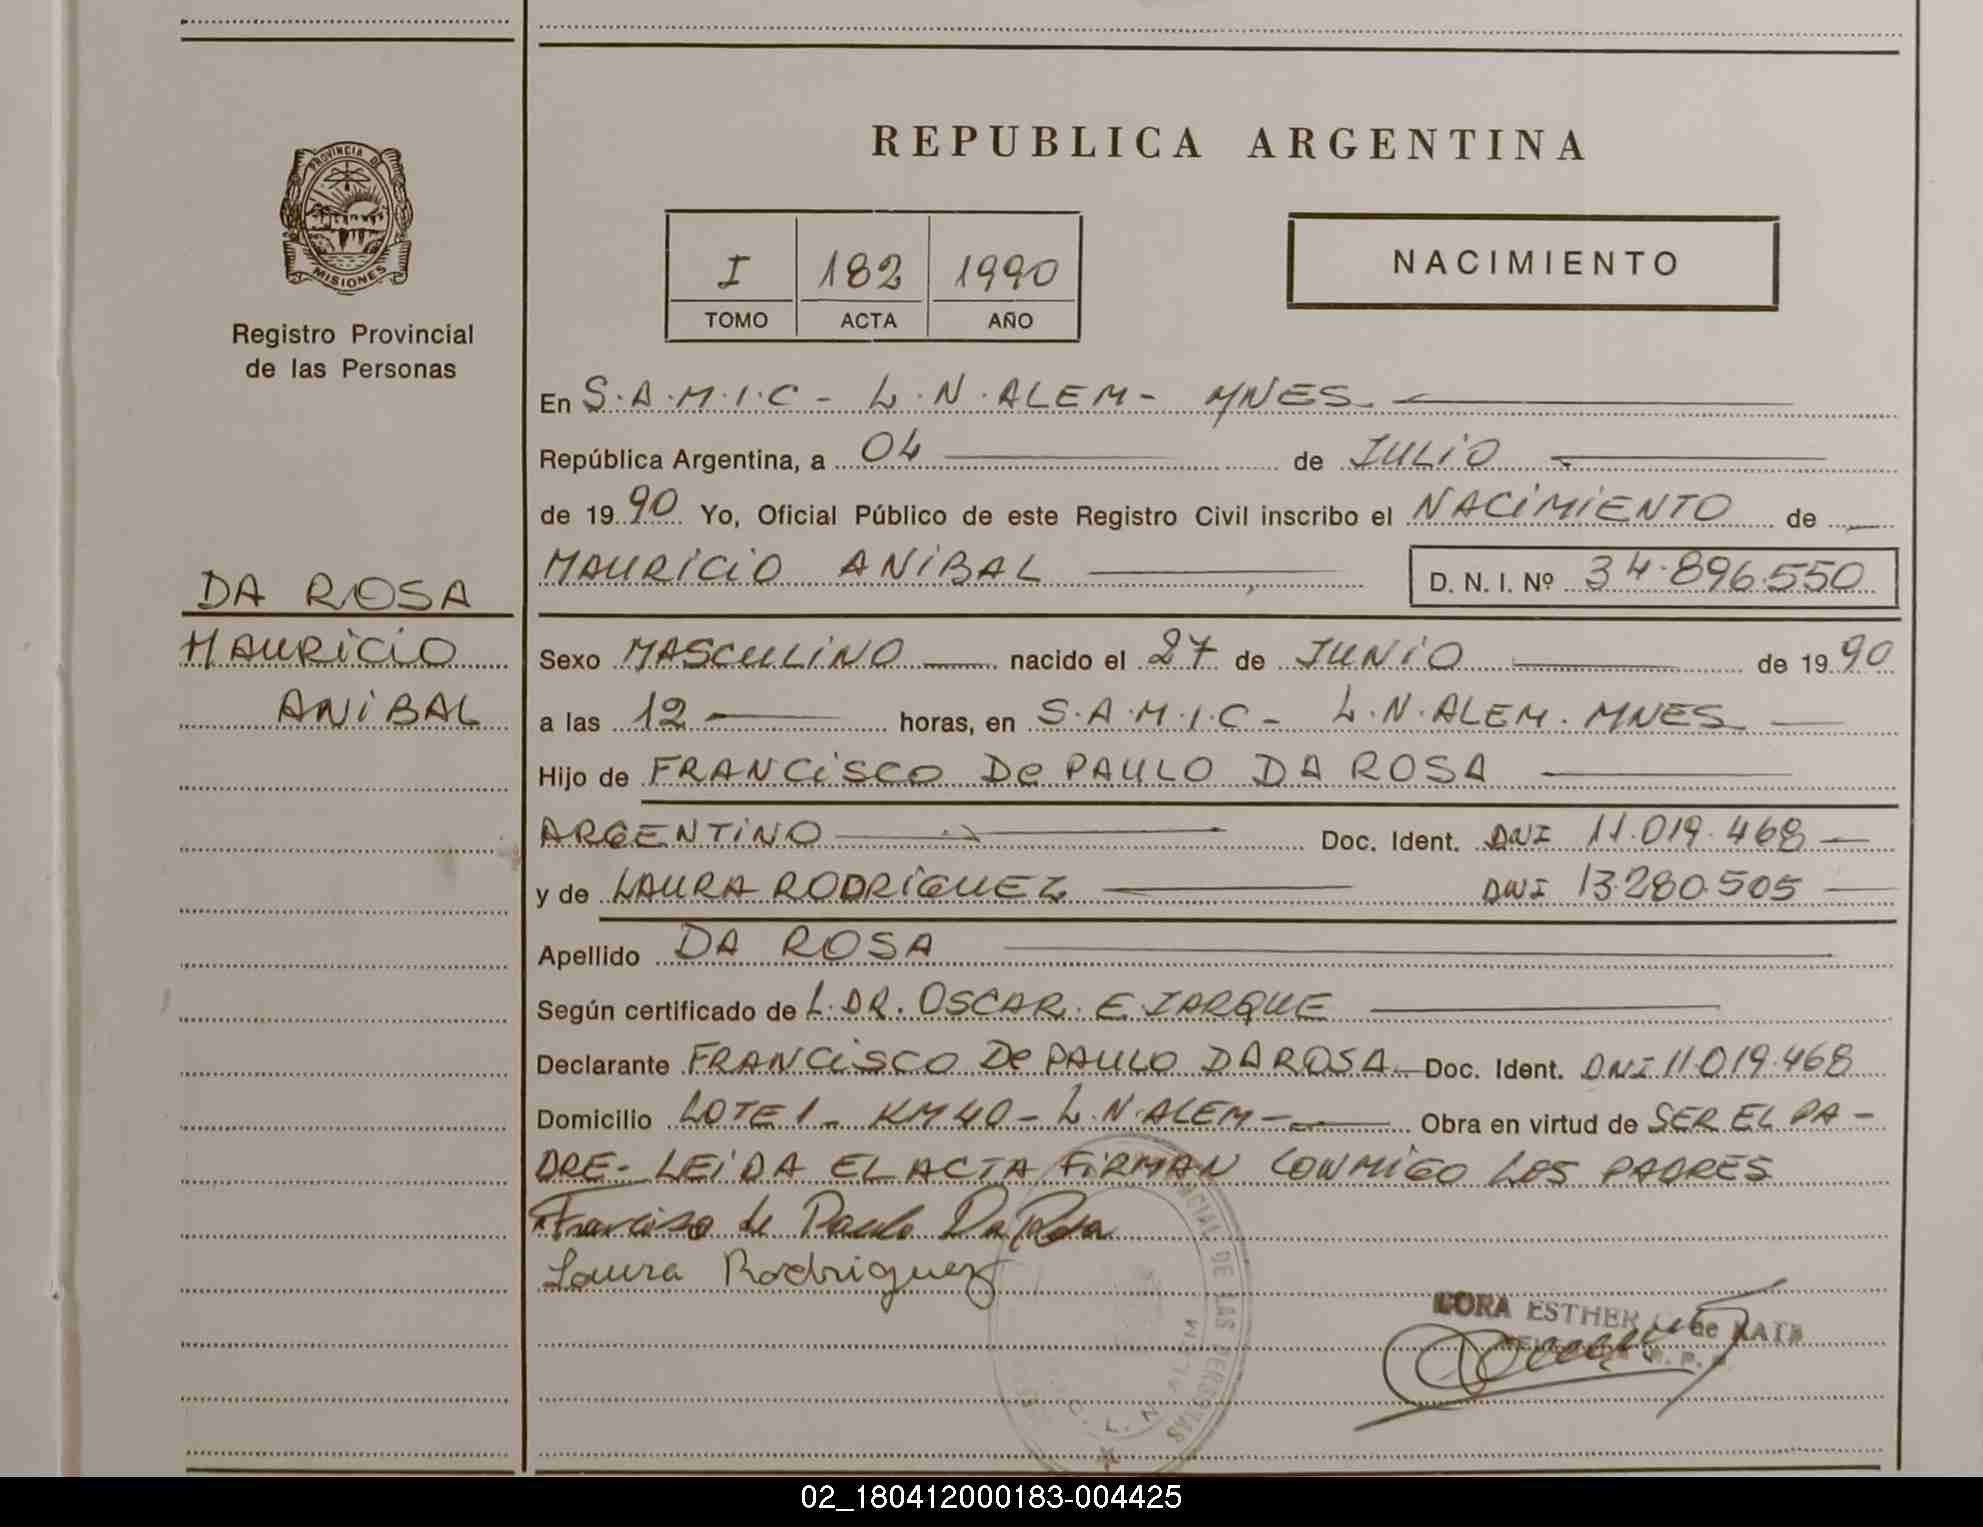 PROVINCIA DE
MISIONES
Registro Provincial
de las Personas
DA ROSA
MAURICIO
ANIBAL
REPUBLICA ARGENTINA
I 182 1990
TOMO ACTA AÑO
NACIMIENTO
En S.A.M.I.C - L.N.ALEM - MNES.
República Argentina, a 04 de JULIO
de 1990 Yo, Oficial Público de este Registro Civil inscribo el NACIMIENTO de
MAURICIO ANIBAL D. N. I. Nº 34.896.550
Sexo MASCULINO nacido el 27 de JUNIO de 1990
a las 12 horas, en S.A.M.I.C - L.N.ALEM. MNES
Hijo de FRANCISCO De PAULO DA ROSA
ARGENTINO Doc. Ident. DNI 11.019.468
y de LAURA RODRIGUEZ DNI 13.280.505
Apellido DA ROSA
Según certificado de L.DR. OSCAR. E JARQUE
Declarante FRANCISCO De PAULO DA ROSA Doc. Ident. DNI 11.019.468
Domicilio LOTE 1 - KM 40 - L.N.ALEM - Obra en virtud de SER EL PA-
DRE - LEIDA EL ACTA FIRMAN CONMIGO LOS PADRES
Francisco de Paulo Da Rosa
Laura Rodriguez
DORA ESTHER de
DE LAS PERSONAS
L. N. ALEM
02_180412000183-004425